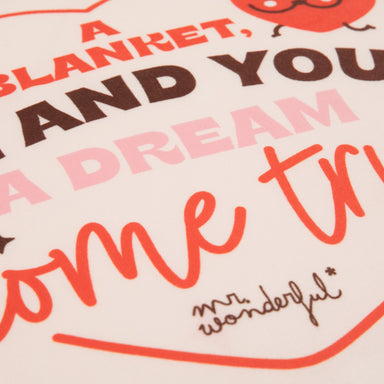 A
BLANKET,
AND YOU
A DREAM
come tru
mr.
wonderful*